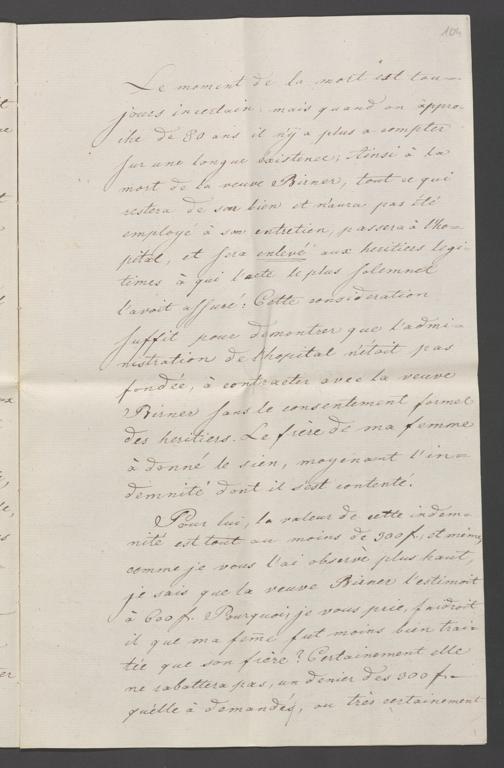 104
Le moment de la mort est tou-
jours incertain. mais quand on appro-
che de 80 ans il n'y a plus a compter
sur une longue existence; Ainsi à la
mort de la veuve Birner, tout ce qui
restera de son bien et n'aura pas été
employé à son entretien, passera à l'ho-
pital, et sera enlevé aux heritiers legi-
times à qui l'acte le plus solemnel
l'avoit assuré: Cette consideration
suffit pour demontrer que l'admi-
nistration de l'hopital n'était pas
fondée, à contracter avec la veuve
Birner sans le consentement formel
des heritiers. Le frère de ma femme
à donné le sien, moyenant l'in-
demnité dont il s'est contenté.
Pour lui, la valeur de cette indem-
nité est tout au moins de 300 f, et même,
comme je vous l'ai observè plus haut,
je sais que la veuve Birner l'estimoit
à 600 f. Pourquoi, je vous prie, faudroit
il que ma feme fut moins bien trai-
tée que son frère? Certainement elle
ne rabattera pas, un denier des 300 f.
qu'elle à demandés, ou très certainement